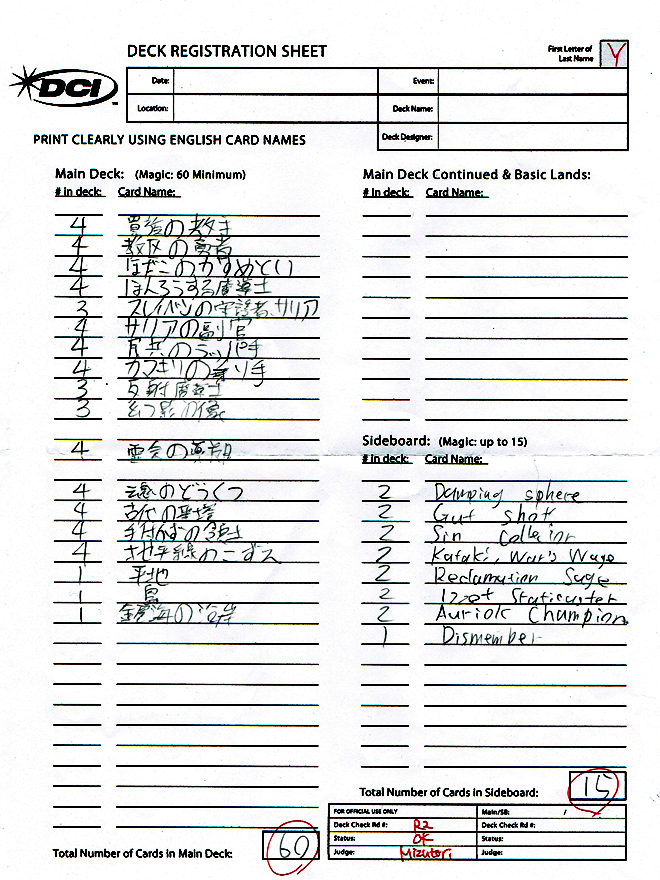 DECK REGISTRATION SHEET
First Letter of Last Name Y
DCI
Date: Event:
Location: Deck Name:
Deck Designer:
PRINT CLEARLY USING ENGLISH CARD NAMES
Main Deck: (Magic: 60 Minimum)
# in deck: Card Name:
4 貴族の教主
4 教区の勇者
4 ほだこのかすめとい
4 ほんろうする魔導士
3 スレイベンの守護者、サリア
4 サリアの副官
4 民兵のラッパ手
4 カマキリの乗り手
3 反射魔導士
3 幻影の像
4 霊気の薬瓶
4 魂のどうくつ
4 古代の聖塔
4 手付かずの領土
4 地平線のこずえ
1 平地
1 島
1 の沿岸
Total Number of Cards in Main Deck: 60
Main Deck Continued & Basic Lands:
# in deck: Card Name:
Sideboard: (Magic: up to 15)
# in deck: Card Name:
2 Damping sphere
2 Gut shot
2 Sin Collector
2 Kataki, War's Wage
2 Reclamation Sage
2 Izzet Staticaster
2 Auriok Champion
1 Dismember
Total Number of Cards in Sideboard: 15
FOR OFFICIAL USE ONLY Main/SB: /
Deck Check Rd #: R2 Deck Check Rd #:
Status: OK Status:
Judge: Mizutori Judge: